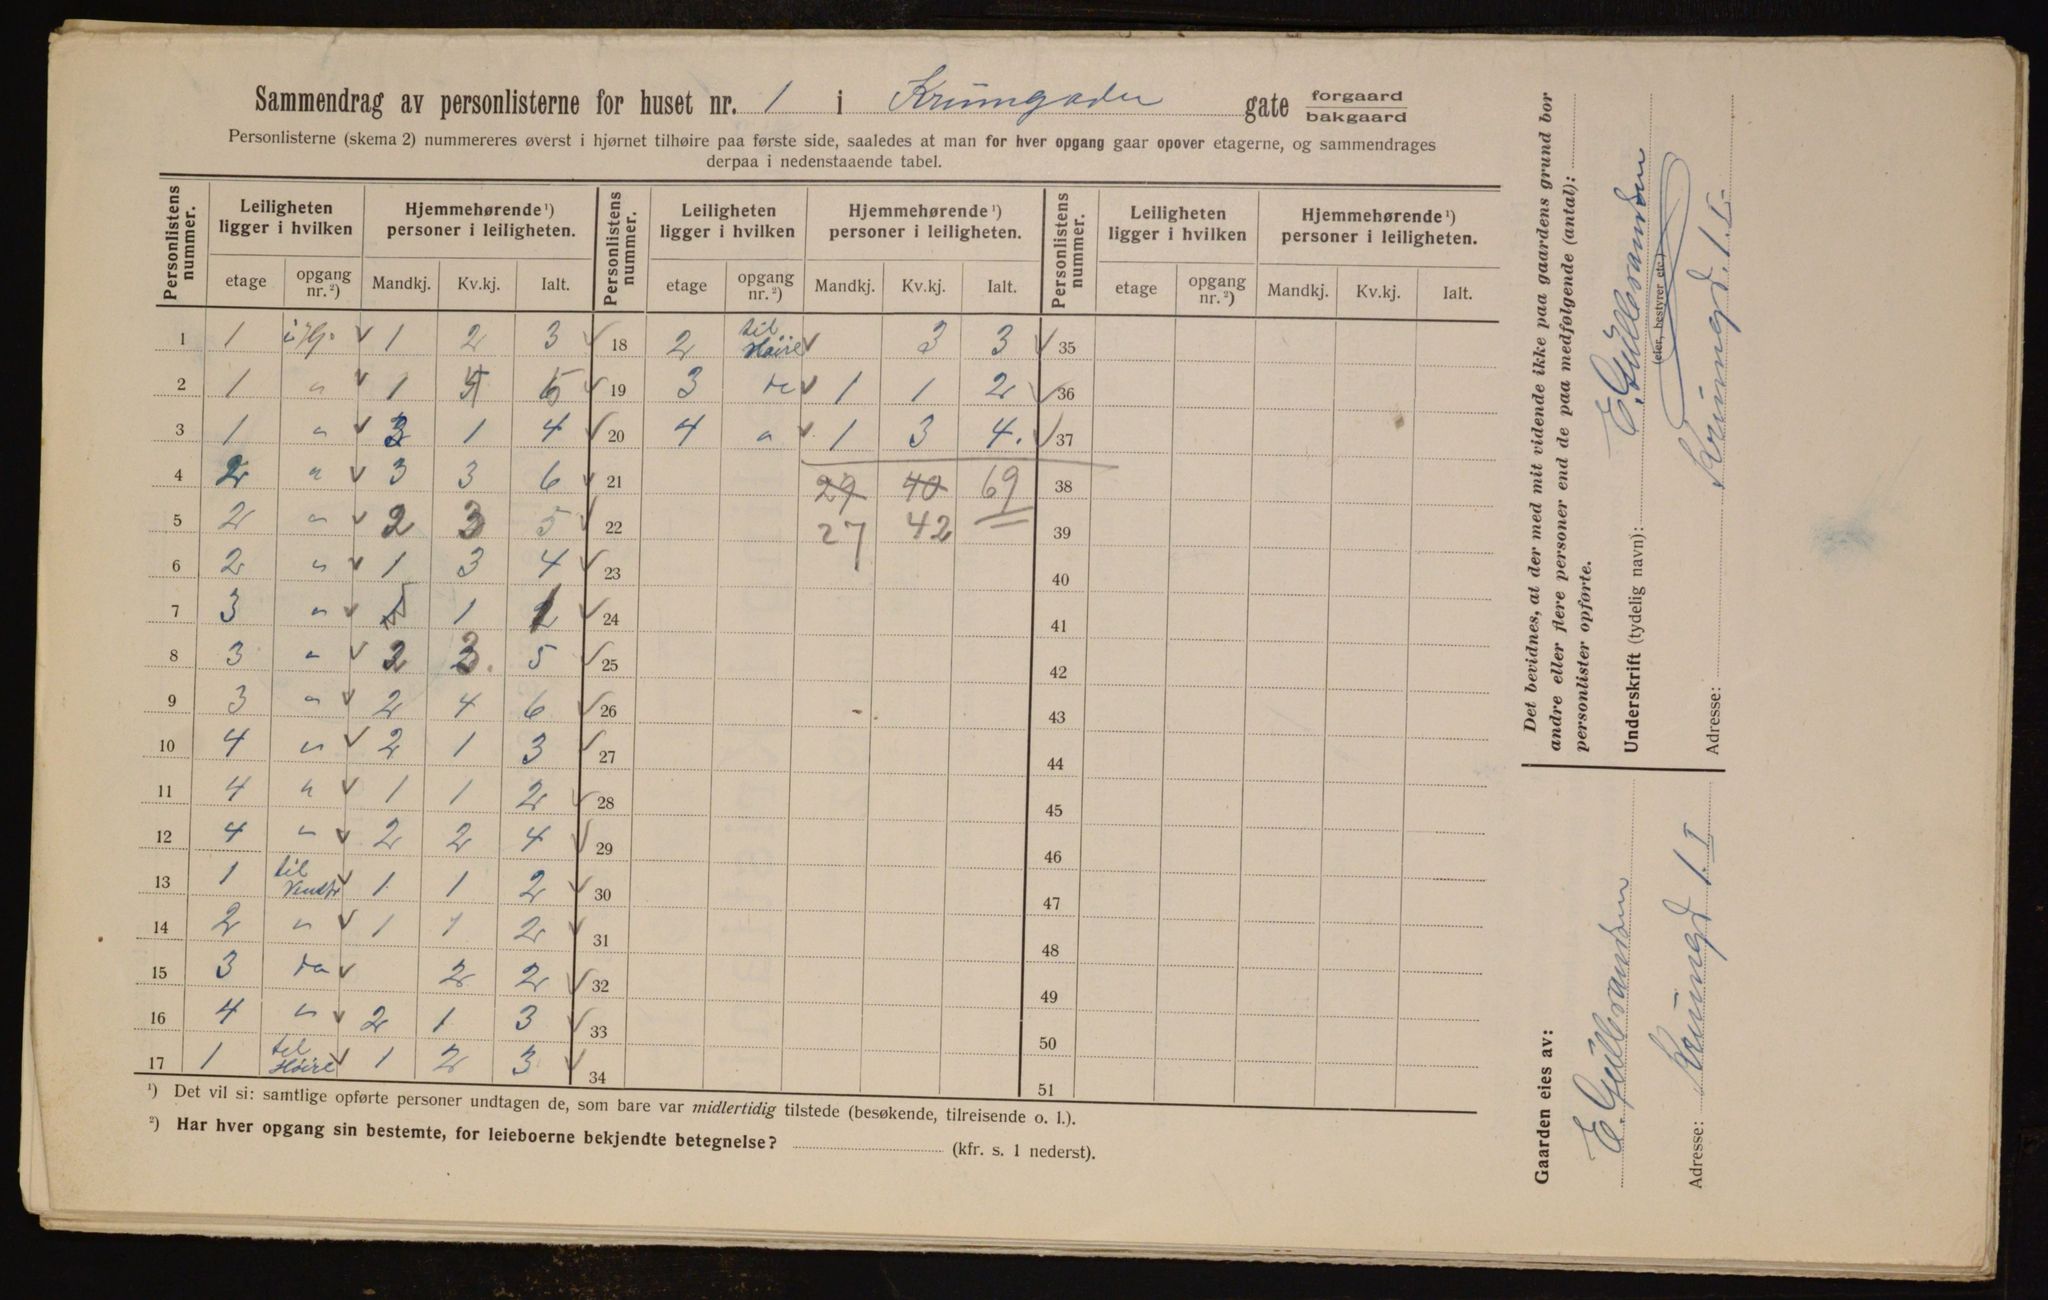 Sammendrag av personlisterne for huset nr. 1 i Krumgaden gate forgaard
bakgaard
Personlisterne (skema 2) nummereres øverst i hjørnet tilhøire paa første side, saaledes at man for hver opgang gaar opover etagerne, og sammendrages
derpaa i nedenstaaende tabel.
Personlistens nummer. Leiligheten ligger i hvilken Hjemmehørende ¹) personer i leiligheten. Personlistens nummer. Leiligheten ligger i hvilken Hjemmehørende ¹) personer i leiligheten. Personlistens nummer. Leiligheten ligger i hvilken Hjemmehørende ¹) personer i leiligheten.
etage opgang nr. ²) Mandkj. Kv.kj. Ialt. etage opgang nr. ²) Mandkj. Kv.kj. Ialt. etage opgang nr. ²) Mandkj. Kv.kj. Ialt.
1 1 v 1 2 3 v 18 2 til Høire v 3 3 v 35
2 1 " v 1 v 19 3 do v 1 1 2 v 36
3 1 " v 1 4 v 20 4 " v 1 3 4. v 37
4 2 " v 3 3 6 v 21 29 40 69 38
5 2 " v 2 3 5 v 22 27 42 39
6 2 " v 1 3 4 v 23 40
7 3 " v 1 1 v 24 41
8 3 " v 2 3. 5 v 25 42
9 3 " v 2 4 6 v 26 43
10 4 " v 2 1 3 v 27 44
11 4 " v 1 1 2 v 28 45
12 4 " v 2 2 4 v 29 46
13 1 til Venstr v 1 1 2 v 30 47
14 2 " v 1 1 2 v 31 48
15 3 do v 2 2 v 32 49
16 4 " v 2 1 3 v 33 50
17 1 til Høire v 1 2 3 v 34 51
¹) Det vil si: samtlige opførte personer undtagen de, som bare var midlertidig tilstede (besøkende, tilreisende o. l.).
²) Har hver opgang sin bestemte, for leieboerne bekjendte betegnelse? (kfr. s. 1 nederst).
Det bevidnes, at der med mit vidende ikke paa gaardens grund bor
andre eller flere personer end de paa medfølgende (antal):
personlister opførte.
Underskrift (tydelig navn): E. Gulbrandsen
(eier, bestyrer etc.)
Adresse: Krumgd. 1. I.
Gaarden eies av:
E. Gulbrandsen
Adresse: Krumgd 1. I